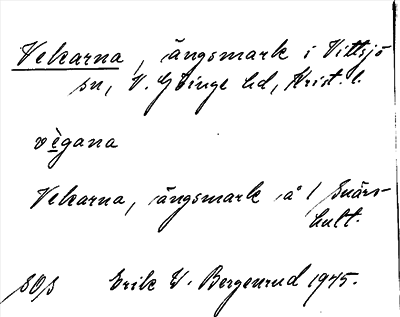 Vekarna, ängsmark i Vittsjö
sn, V. Göinge hd, Krist. l.
vègana
Vekarna, ängsmark å 1 Snärs-
hult.
SOs Erik W. Bergenrud 1945.